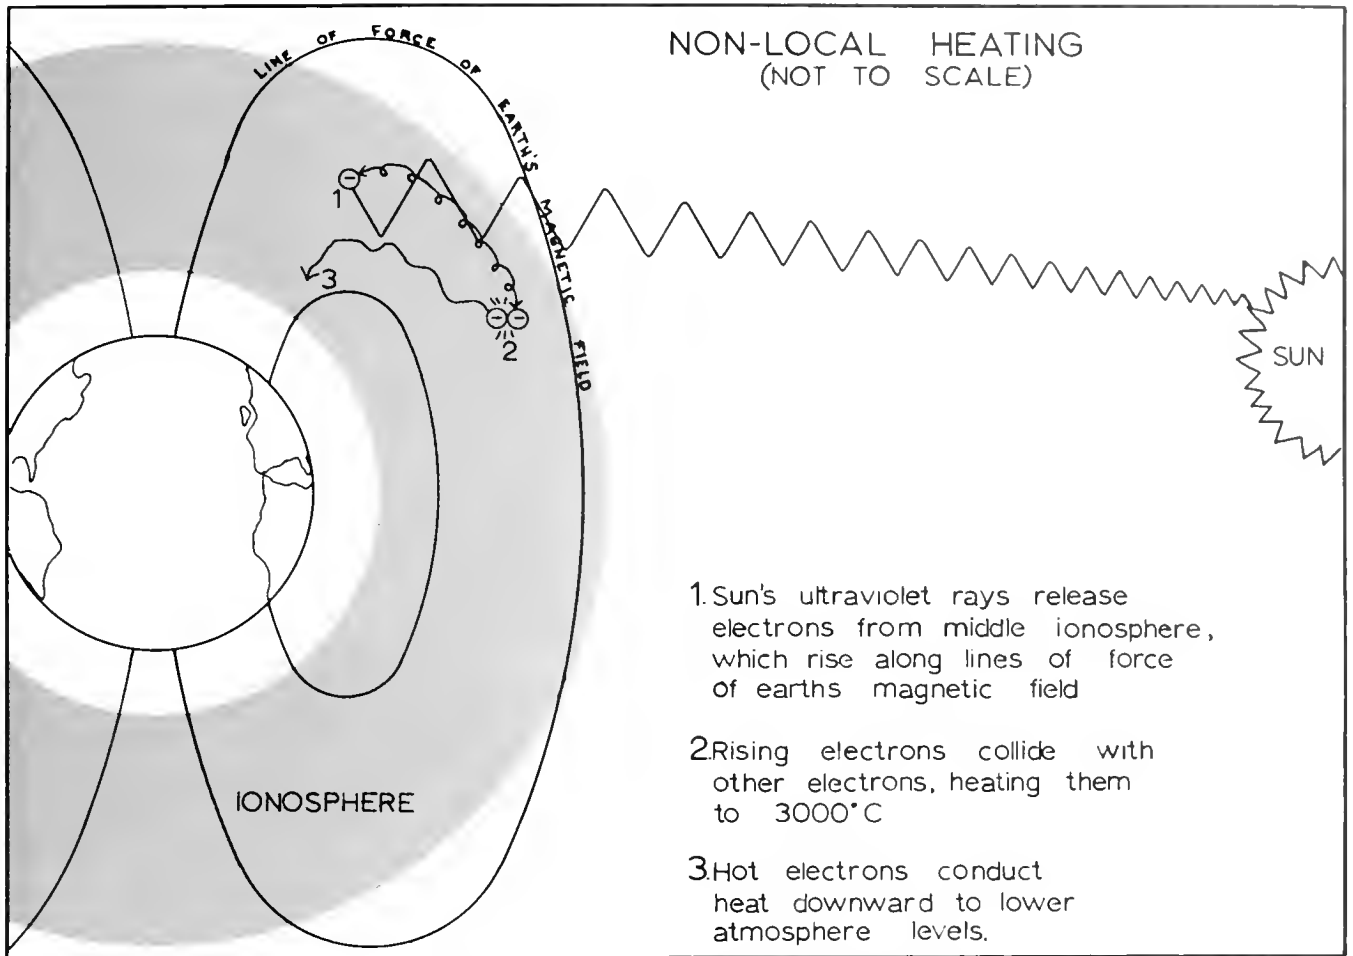 NON-LOCAL HEATING
(NOT TO SCALE)
LINE OF FORCE OF EARTH'S MAGNETIC FIELD
1
3
2
SUN
IONOSPHERE
1. Sun's ultraviolet rays release
electrons from middle ionosphere,
which rise along lines of force
of earths magnetic field
2. Rising electrons collide with
other electrons, heating them
to 3000°C
3. Hot electrons conduct
heat downward to lower
atmosphere levels.